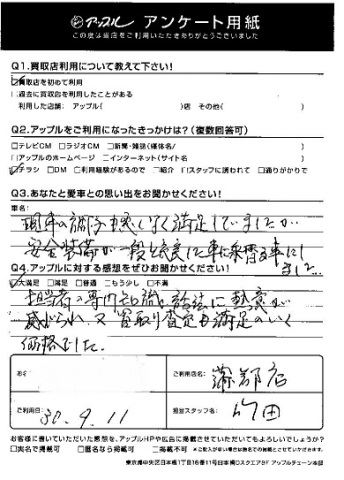 アップル アンケート用紙
この度は当店をご利用いただきありがとうございました
Q1.買取店利用について教えて下さい!
☑買取店を初めて利用
□過去に買取店を利用したことがある
利用した店舗: アップル( )店 その他( )
Q2.アップルをご利用になったきっかけは?(複数回答可)
□テレビCM □ラジオCM □新聞・雑誌(媒体名/ )
□アップルのホームページ □インターネット(サイト名 )
☑チラシ □DM □利用経験があるので □紹介 □スタッフに誘われて □通りがかりで
Q3.あなたと愛車との思い出をお聞かせください!
車名:
現車の調子も悪くなく満足していましたが
安全装備が一段と充実した車に乗替る事にし
ました
Q4.アップルに対する感想をぜひお聞かせください!
☑大満足 □満足 □普通 □もう少し □不満
担当者の専門知識と話法に熱意が
感じられ、又買取り査定も満足のいく
価格でした。
お名
ご利用店名: 蒲郡店
ご利用日: 30.9.11
担当スタッフ名: 竹田
お客様に書いていただいた感想を、アップルHPや広告に掲載させていただいてもよろしいでしょうか?
□実名で掲載可 □匿名なら掲載可 □掲載不可
東京都中央区日本橋1丁目16番11号日本橋Dスクエア8F アップルチェーン本部